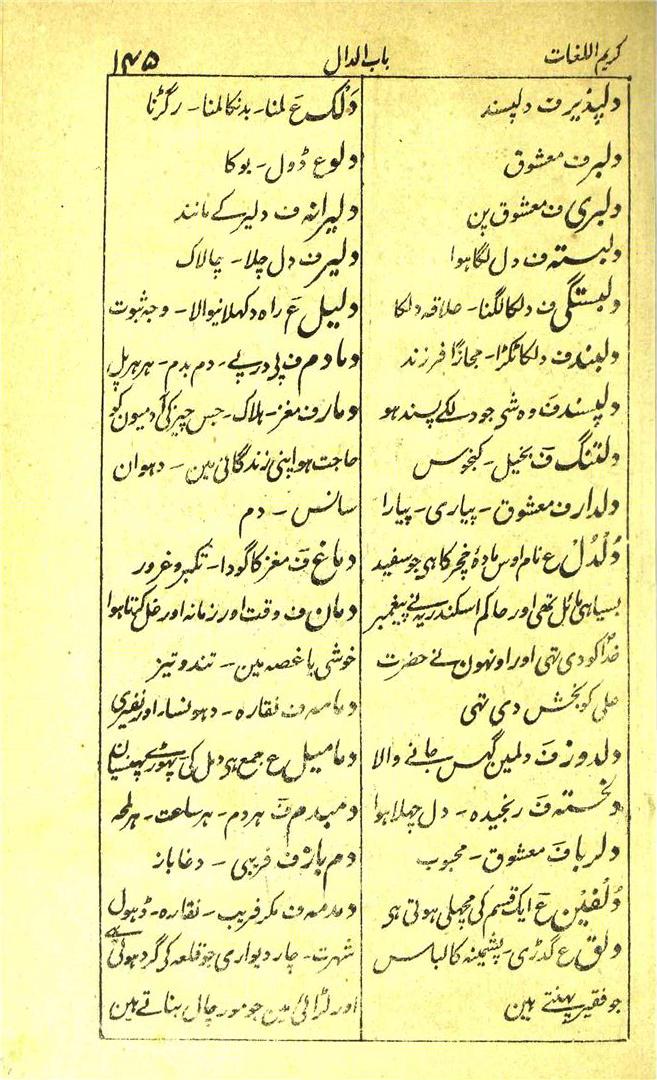 کریم اللغات
باب الدال
۱۴۵
دلپذیر ف دلپسند
دلبر ف معشوق
دلبری ف معشوق پن
دلبستہ ف دل لگا ہوا
دلبستگی ف دلکا لگنا - علاقہ دلکا
دلبند ف دلکا ٹکڑا - مجازًا فرزند
دلپسند ف وہ شی جو دلکے پسند ہو
دلتنگ ف بخیل - کنجوس
دلدار ف معشوق - پیاری - پیارا
دُلْدُلْ ع نام اوس مادۂ خچر کا ہی جو سفید
بسیاہی مائل تھی اور حاکم اسکندریہ نے پیغمبر
خداؐ کو دی تہی اور اونہون نے حضرت
علی کو بخش دی تہی
دلدوز ف دلمین گہس جانے والا
دلخستہ ف رنجیدہ - دل چہلا ہوا
دلربا ف معشوق - محبوب
دُلْفِیْن ع ایک قسم کی مچہلی ہوتی ہی
دلق ع گدڑی - پشمینہ کا لباس
جو فقیر پہنتے ہین
دَلْک ع ملنا - بدنکا ملنا - رگڑنا
دلو ع ڈول - بوکا
دلیرانہ ف دلیر کے مانند
دلیر ف دل چلا - چالاک
دلیل ع راہ دکہلانیوالا - وجہ ثبوت
دمادم ف پی در پے - دم بدم - ہر ہر پل
دمار ف مغز - ہلاک - جس چیز کی آدمیون کو
حاجت ہو اپنی زندگانی مین - دہوان
سانس - دم
دماغ ف مغز کا گودا - تکبر و غرور
دمان ف وقت اور زمانہ اور غل کہتا ہوا
خوشی یا غصہ مین - تند و تیز
دمامہ ف نقارہ - دہونسا اور نفیری
دمامیل ع جمع ہی دمل کی پہوڑے پہنسیان
دمبدم ف ہر دم - ہر ساعت - ہر لمحہ
دم باز ف فریبی - دغا باز
دمدمہ ف مکر فریب - نقارہ - ڈہول
شہرت - چار دیواری جو قلعہ کی گرد ہوتی ہے
اور لڑائی مین جو مورچال بناتے ہین